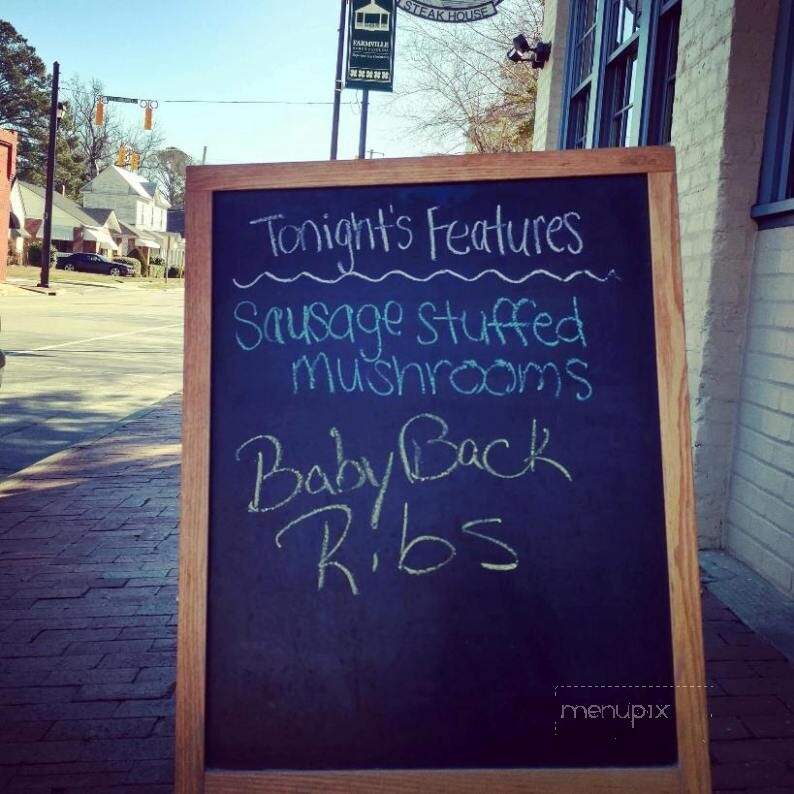 STEAK HOUSE
FARMVILLE
Tonight's Features
Sausage stuffed
mushrooms
Baby Back
Ribs
menupix